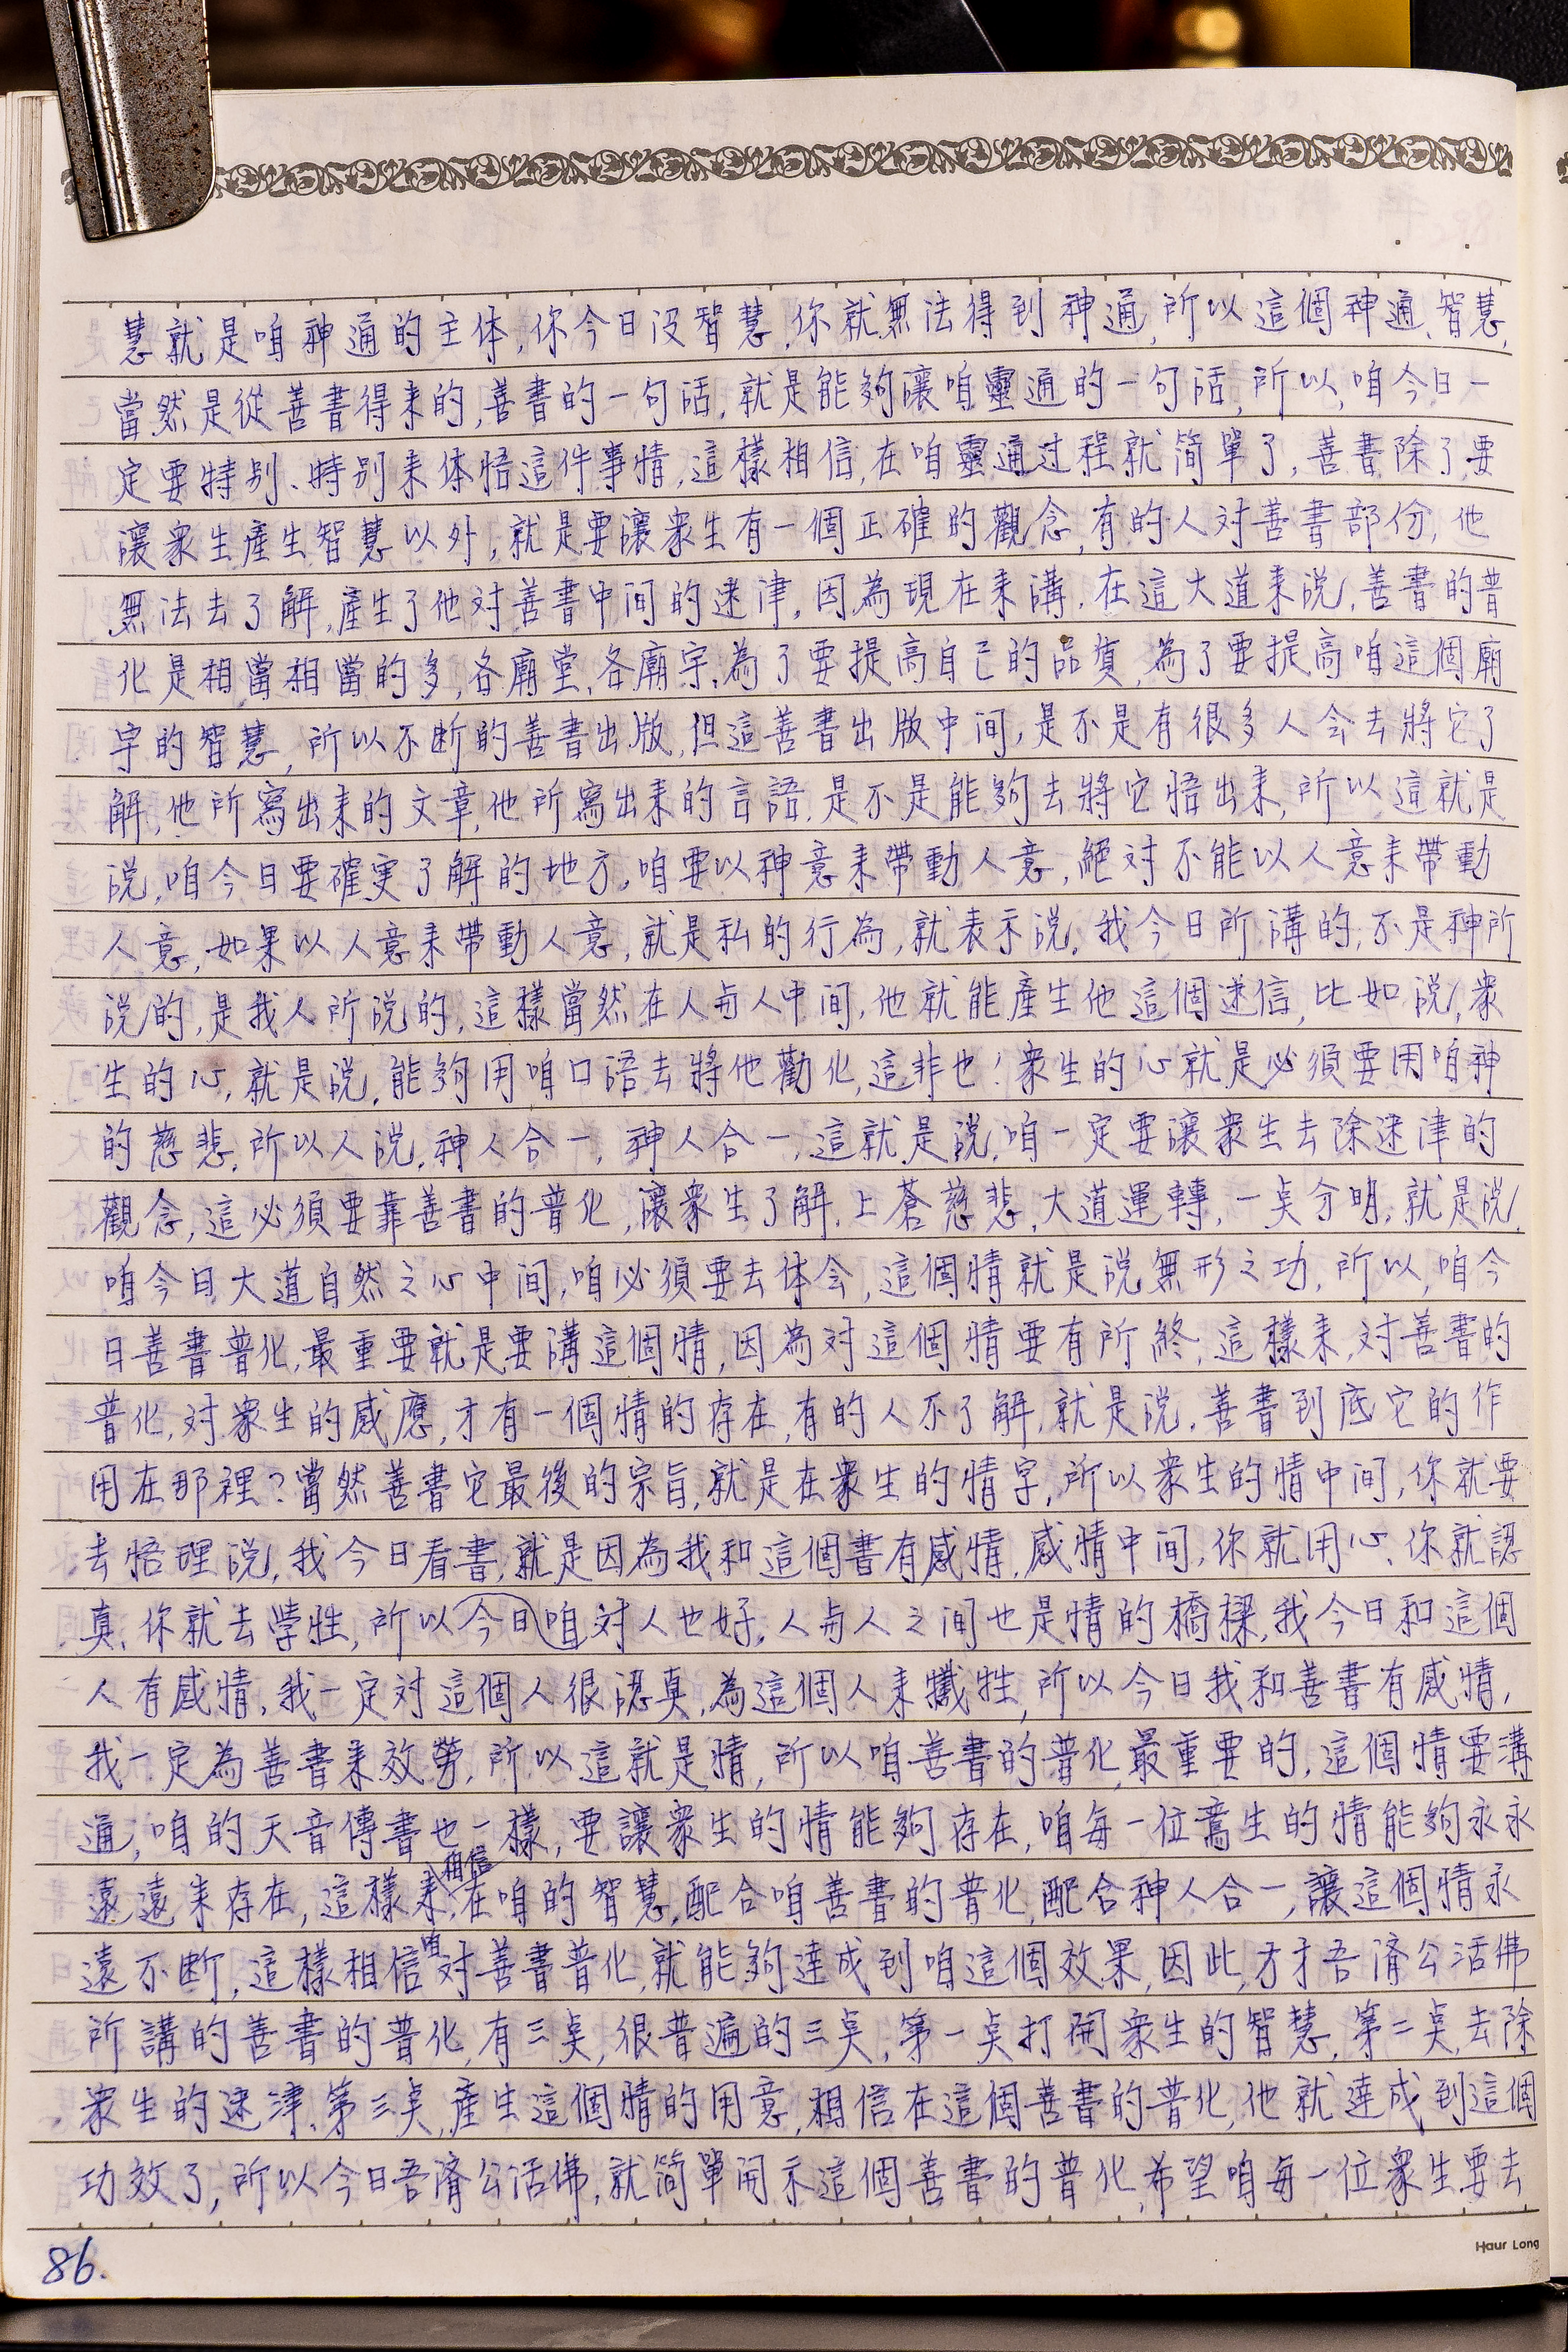 慧就是咱神通的主体,你今日沒智慧,你就無法得到神通,所以這個神通、智慧,
當然是從善書得來的,善書的一句話,就是能夠讓咱靈通的一句話,所以,咱今日一
定要特別、特別來体悟這件事情,這樣相信,在咱靈通过程就简單了,善書除了要
讓衆生產生智慧以外,就是要讓衆生有一個正確的觀念,有的人对善書部份,他
無法去了解,產生了他对善書中间的迷津,因為現在來講,在這大道來說,善書的普
化是相當相當的多,各廟堂,各廟宇,為了要提高自己的品質,為了要提高咱這個廟
宇的智慧,所以不断的善書出版,但這善書出版中间,是不是有很多人会去將它了
解,他所寫出來的文章,他所寫出來的言語,是不是能夠去將它悟出來,所以這就是
說,咱今日要確实了解的地方,咱要以神意來帶動人意,絕对不能以人意來帶動
人意,如果以人意來帶動人意,就是私的行為,就表示說,我今日所講的,不是神所
說的,是我人所說的,這樣當然在人与人中间,他就能產生他這個迷信,比如說,衆
生的心,就是說,能夠用咱口語去將他勸化,這非也!衆生的心就是必須要用咱神
的慈悲,所以人說,神人合一,神人合一,這就是說,咱一定要讓衆生去除迷津的
觀念,這必須要靠善書的普化,讓衆生了解,上蒼慈悲,大道運轉,一奌分明,就是說,
咱今日大道自然之心中间,咱必須要去体会,這個情就是說無形之功,所以,咱今
日善書普化,最重要就是要講這個情,因為对這個情要有所終,這樣來,对善書的
普化,对衆生的感應,才有一個情的存在,有的人不了解,就是說,善書到底它的作
用在那裡?當然善書它最後的宗旨,就是在衆生的情字,所以衆生的情中间,你就要
去悟理說,我今日看書,就是因為我和這個書有感情,感情中间,你就用心、你就認
真、你就去犧牲,所以今日咱对人也好,人与人之间也是情的橋樑,我今日和這個
人有感情,我一定对這個人很認真,為這個人來犧牲,所以今日我和善書有感情,
我一定為善書來效勞,所以這就是情,所以咱善書的普化,最重要的,這個情要溝
通,咱的天音傳書也一樣,要讓衆生的情能夠存在,咱每一位鸞生的情能夠永永
遠遠來存在,這樣來,相信在咱的智慧,配合咱善書的普化,配合神人合一,讓這個情永
遠不断,這樣相信咱对善書普化,就能夠達成到咱這個效果,因此,方才吾濟公活佛
所講的善書的普化,有三奌,很普遍的三奌,第一奌打開衆生的智慧,第二奌,去除
衆生的迷津,第三奌,產生這個情的用意,相信在這個善書的普化,他就達成到這個
功效了,所以今日吾濟公活佛,就简單開示這個善書的普化,希望咱每一位衆生要去
86.
Haur Long